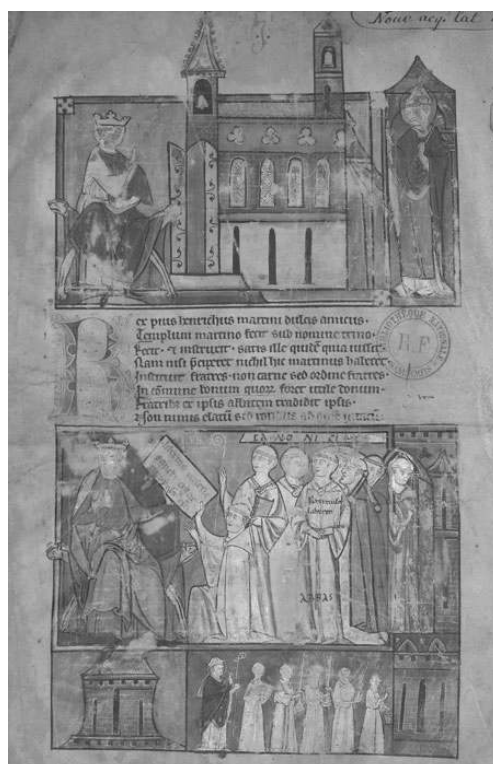 Nouv. acq. lat.
Rex pius henrichus martini dulcis amicus.
Templum martino fecit sub nomine trino.
Fecit. et instituit. satis ille quidē quia iussit.
Nam nisi p̄ciperet nichil hic martinus haberet.
Instituit fratres non carne sed ordine fratres.
In cōmune bonum quoꝝ foret utile donum.
Fratribꝰ ex ipsis abbatem tradidit ipsis.
Non nimis elatū sed
BIBLIOTHÈQUE NATIONALE
CANONICI
ABBAS